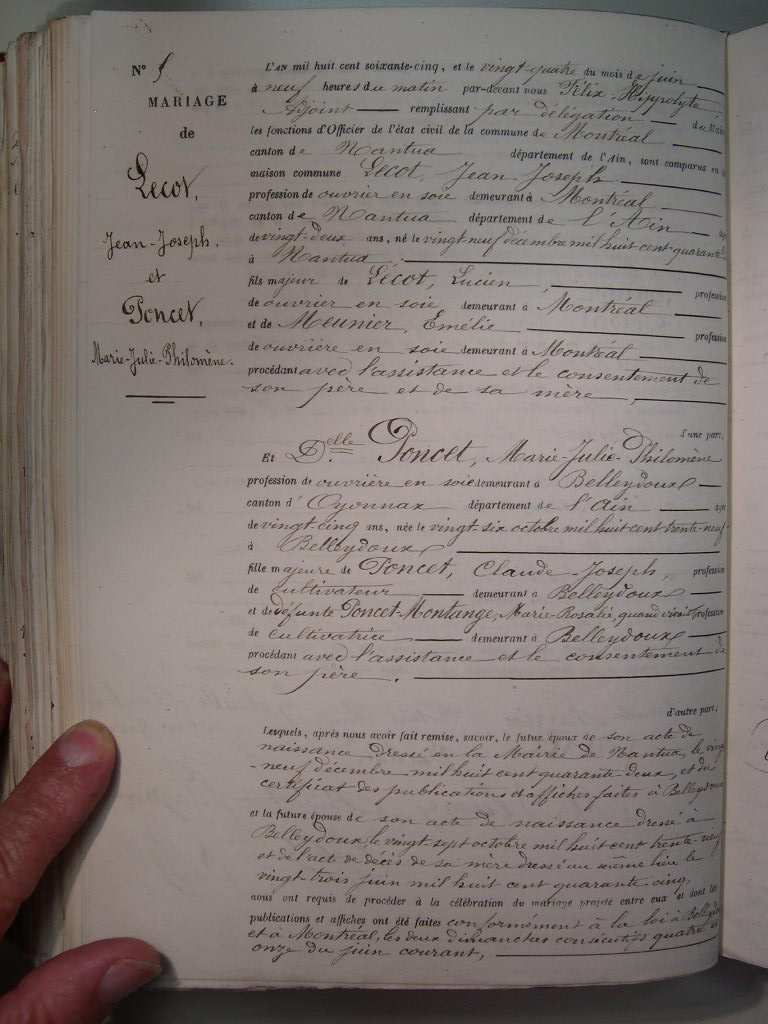 N°
MARIAGE
de
Lecot,
Jean-Joseph.
et
Poncet,
Marie-Julie-Philomène.
L'AN mil huit cent soixante-cinq, et le vingt-quatre du mois de juin
à neuf heures du matin par-devant nous Félix-Hippolyte
Adjoint remplissant par délégation du Maire
les fonctions d'Officier de l'état civil de la commune de Montréal
canton de Nantua département de l'Ain, sont comparus en la
maison commune Lecot, Jean-Joseph
profession de ouvrier en soie demeurant à Montréal
canton de Nantua département de l'Ain
de vingt-deux ans, né le vingt neuf décembre mil huit cent quarante
à Nantua,
fils majeur de Lecot, Lucien, profession
de ouvrier en soie demeurant à Montréal
et de Meunier, Emélie profession
de ouvrière en soie demeurant à Montréal
procédant avec l'assistance et le consentement de
son père et de sa mère,
d'une part,
Et D.elle Poncet, Marie-Julie-Philomène
profession de ouvrière en soie demeurant à Belleydoux
canton d'Oyonnax département de l'Ain
de vingt-cinq ans, née le vingt-six octobre mil huit cent trente-neuf
à Belleydoux
fille majeure de Poncet, Claude-Joseph, profession
de cultivateur demeurant à Belleydoux
et de défunte Poncet-Montange, Marie-Rosalie, quand vivait profession
de cultivatrice demeurant à Belleydoux
procédant avec l'assistance et le consentement de
son père.
d'autre part;
Lesquels, après nous avoir fait remise, savoir, le futur époux de son acte de
naissance dressé en la Mairie de Nantua, le vingt
-neuf décembre mil huit cent quarante deux, et du
certificat des publications et affiches faites à Belleydoux
et la future épouse de son acte de naissance dressé à
Belleydoux, le vingt-sept octobre mil huit cent trente-neuf
et de l'acte de décès de sa mère dressé au même lieu le
vingt trois juin mil huit cent quarante-cinq,
nous ont requis de procéder à la célébration du mariage projeté entre eux et dont les
publications et affiches ont été faites conformément à la loi à Belleydoux
et à Montréal, les deux dimanches consécutifs quatre et
onze du juin courant,